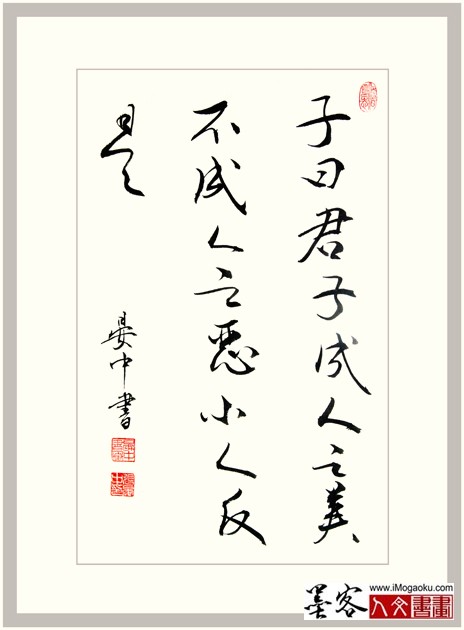 子曰君子成人之美
不成人之惡小人反
是
晏中書
墨客
www.iMogaoku.com
人文書畫